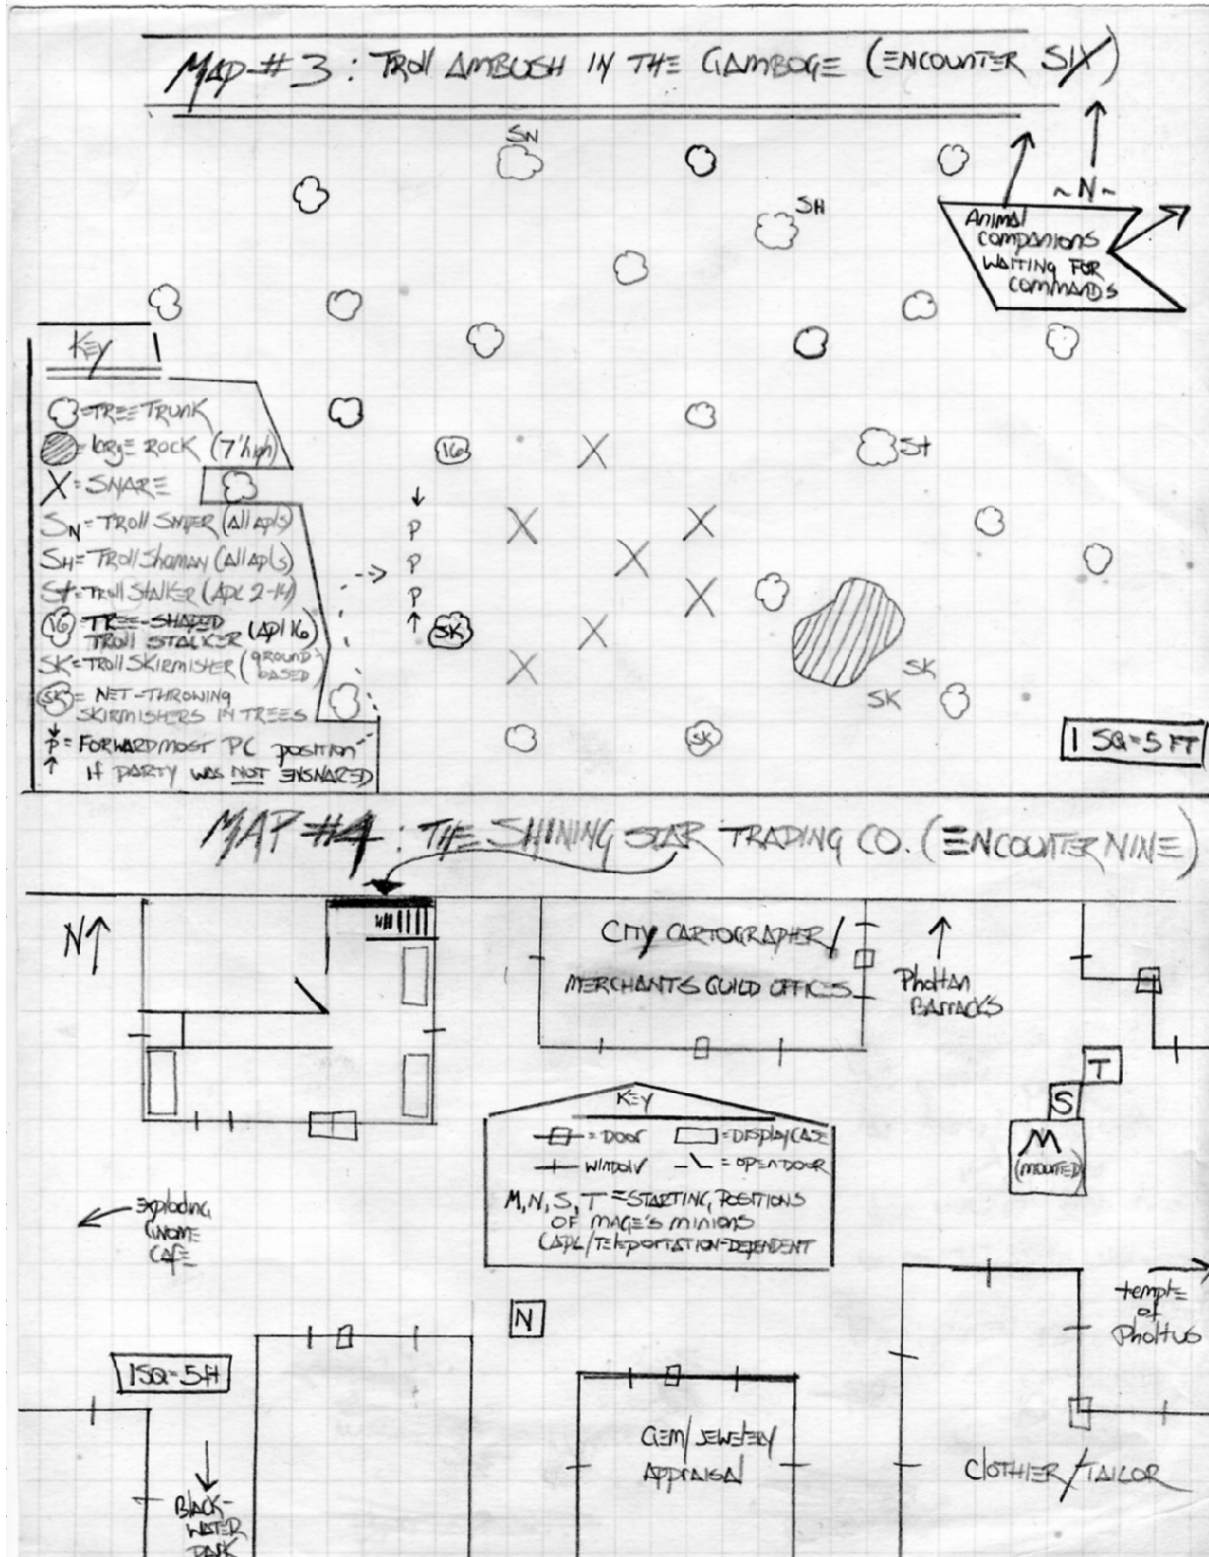 MAP #3 : TROLL AMBUSH IN THE GAMBOGE (ENCOUNTER SIX)
SN
SH
~N~
ANIMAL
COMPANIONS
WAITING FOR
COMMANDS
KEY
=TREE TRUNK
= large ROCK (7' high)
X = SNARE
SN = TROLL SNIPER (All apls)
SH = TROLL Shaman (All Apls)
St = TROLL STALKER (APL 2-14)
16 = TREE-SHAPED
TROLL STALKER (Apl 16)
SK = TROLL SKIRMISHER (GROUND-
BASED)
SK = NET-THROWING
SKIRMISHERS IN TREES
P = FORWARDMOST PC POSITION
IF PARTY WAS NOT ENSNARED
16
X
St
P
X
X
P
X
P
X
SK
X
SK
X
SK
SK
1 SQ = 5 FT
MAP #4 : THE SHINING STAR TRADING CO. (ENCOUNTER NINE)
N
CITY CARTOGRAPHER/
MERCHANTS GUILD OFFICES
Pholtan
BARRACKS
T
S
M
(MOUNTED)
KEY
= DOOR
= DISPLAY CASE
= WINDOW
= OPEN DOOR
M, N, S, T = STARTING POSITIONS
OF MAGE'S MINIONS
(APL/TELEPORTATION-DEPENDENT
Exploding
GNOME
CAFE
N
temple
of
Pholtus
1 SQ = 5 ft
GEM/JEWELERY
APPRAISAL
CLOTHIER/TAILOR
BLACK-
WATER
PARK